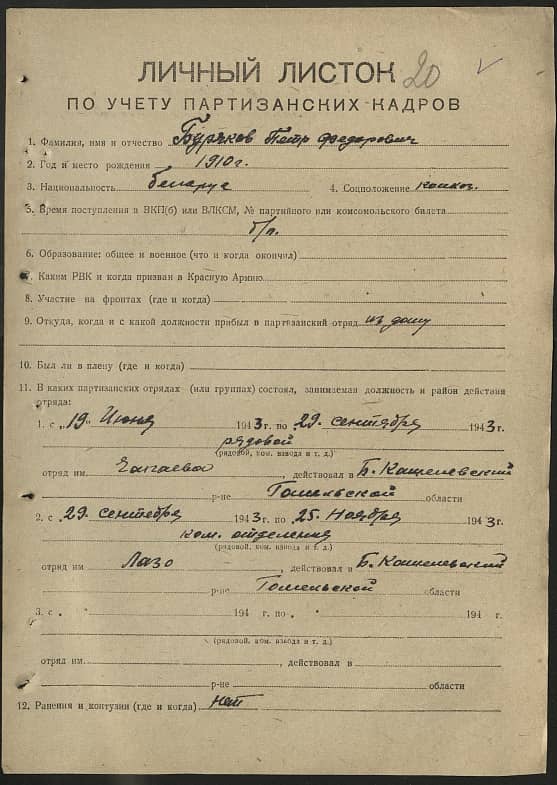 ЛИЧНЫЙ ЛИСТОК 20
ПО УЧЕТУ ПАРТИЗАНСКИХ КАДРОВ
1. Фамилия, имя и отчество Буряков Петр Федорович
2. Год и место рождения 1910 г.
3. Национальность беларус 4. Соцположение колхоз.
5. Время поступления в ВКП(б) или ВЛКСМ, № партийного или комсомольского билета
б/п.
6. Образование: общее и военное (что и когда окончил)
7. Каким РВК и когда призван в Красную Армию
8. Участие на фронтах (где и когда)
9. Откуда, когда и с какой должности прибыл в партизанский отряд из дому
10. Был ли в плену (где и когда)
11. В каких партизанских отрядах (или группах) состоял, занимаемая должность и район действия
отряда:
1. с „19“ Июня 1943 г. по 29. сентября 1943 г.
рядовой
(рядовой, ком. взвода и т. д.)
отряд им. Чапаева, действовал в Б. Кошелевский
р-не Гомельской области
2. с 29. сентября 1943 г. по 25. Ноября 1943 г.
ком. отделения
(рядовой, ком. взвода и т. д.)
отряд им Лазо, действовал в Б. Кошелевский
р-не Гомельской области
3. с 194 г. по 194 г.
(рядовой, ком. взвода и т. д.)
отряд им., действовал в
р-не области
12. Ранения и контузии (где и когда) нет